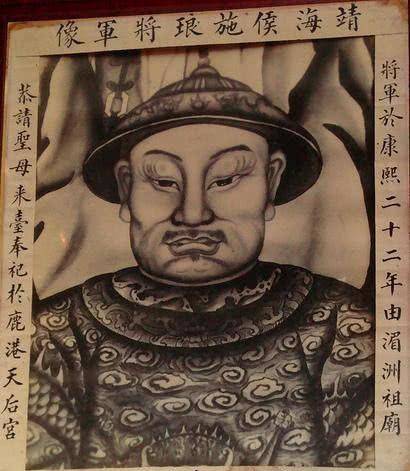 靖海侯施琅將軍像
將軍於康熙二十二年由湄洲祖廟
恭請聖母來臺奉祀於鹿港天后宮